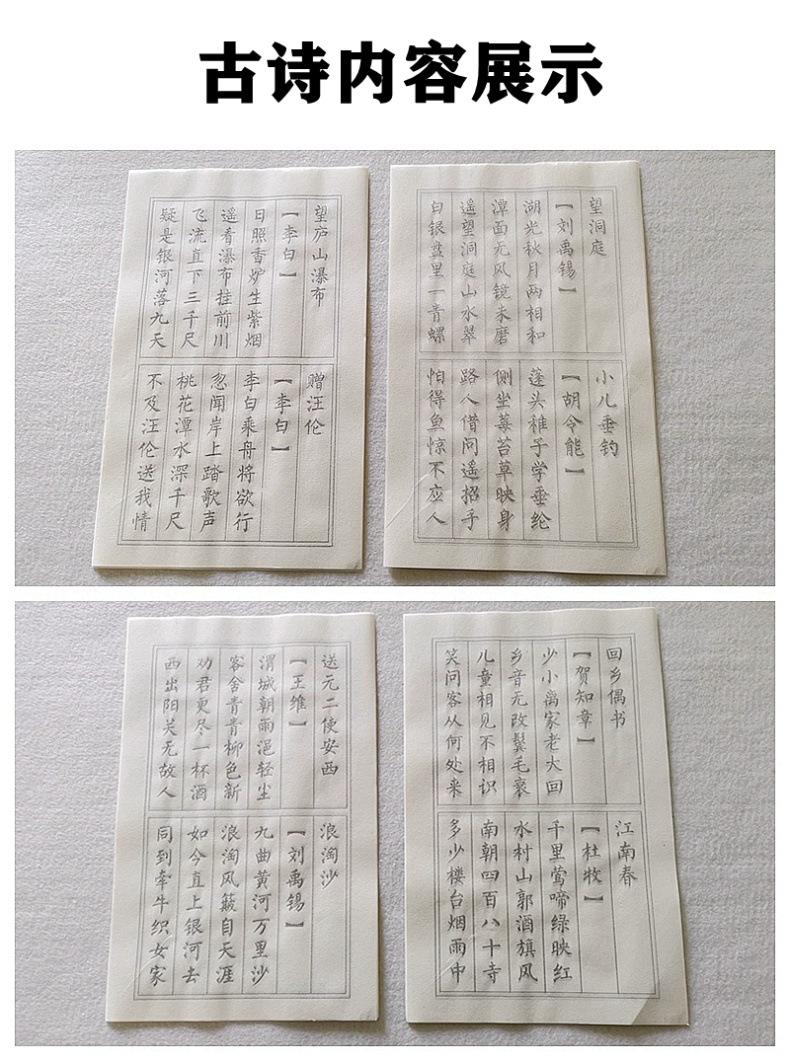 古诗内容展示
望庐山瀑布
【李白】
日照香炉生紫烟
遥看瀑布挂前川
飞流直下三千尺
疑是银河落九天
赠汪伦
【李白】
李白乘舟将欲行
忽闻岸上踏歌声
桃花潭水深千尺
不及汪伦送我情
望洞庭
【刘禹锡】
湖光秋月两相和
潭面无风镜未磨
遥望洞庭山水翠
白银盘里一青螺
小儿垂钓
【胡令能】
蓬头稚子学垂纶
侧坐莓苔草映身
路人借问遥招手
怕得鱼惊不应人
送元二使安西
【王维】
渭城朝雨浥轻尘
客舍青青柳色新
劝君更尽一杯酒
西出阳关无故人
浪淘沙
【刘禹锡】
九曲黄河万里沙
浪淘风簸自天涯
如今直上银河去
同到牵牛织女家
回乡偶书
【贺知章】
少小离家老大回
乡音无改鬓毛衰
儿童相见不相识
笑问客从何处来
江南春
【杜牧】
千里莺啼绿映红
水村山郭酒旗风
南朝四百八十寺
多少楼台烟雨中